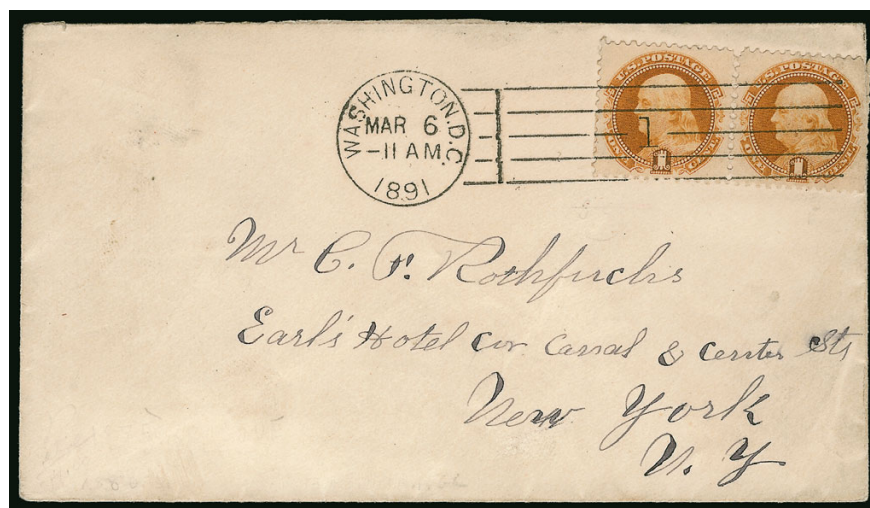 WASHINGTON, D.C.
MAR 6
-11 AM
1891
1
U.S. POSTAGE
ONE CENT
1
U.S. POSTAGE
ONE CENT
1
Mr C. F. Rothfuchs
Earl's Hotel cor Canal & Center Sts
New York
N. Y